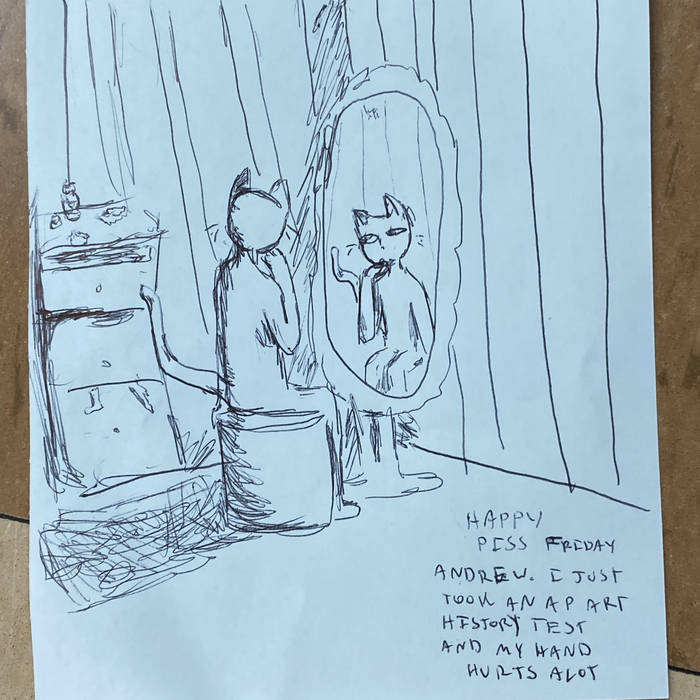 HAPPY
PISS FRIDAY
ANDREW. I JUST
TOOK AN AP ART
HISTORY TEST
AND MY HAND
HURTS ALOT